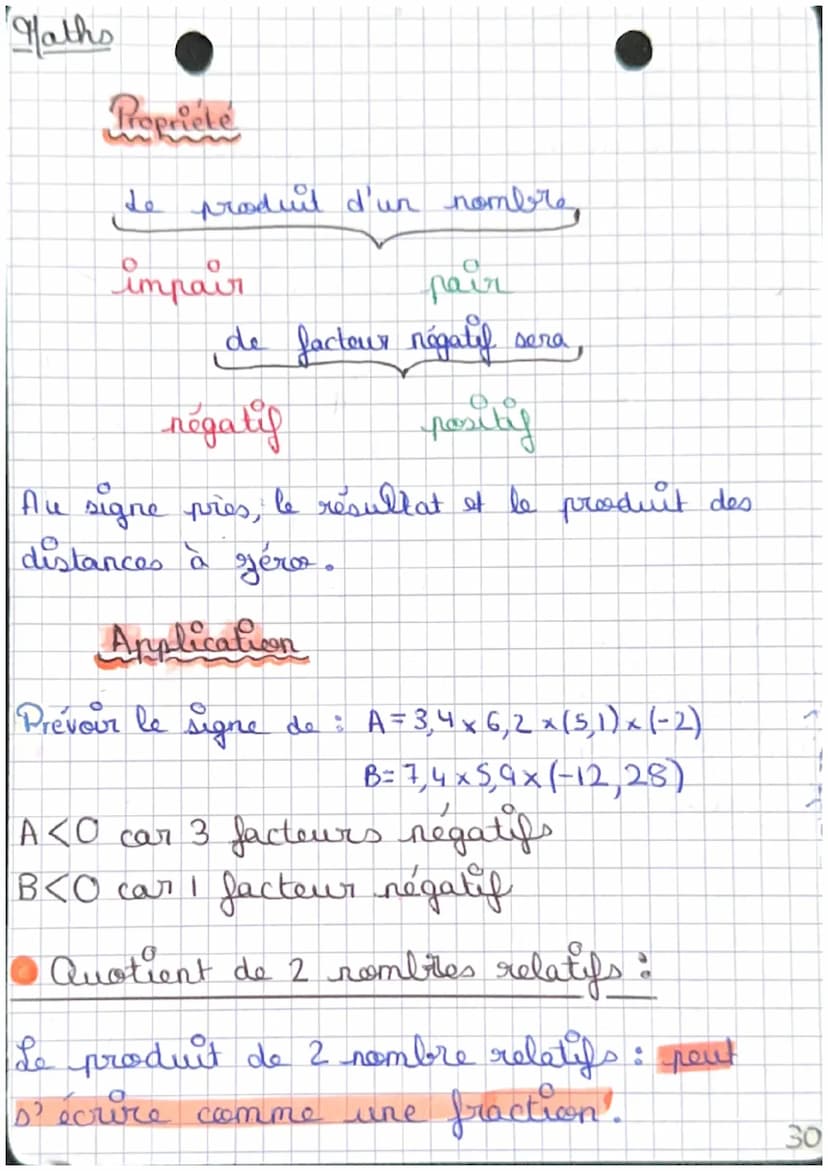 Maths
Propriété
Le produit d'un nombre
impair pair
de facteur négatif sera
négatif positif
Au signe près, le résultat et le produit des
distances à zéros.
Application
Prévoir le signe de : A = 3,4 x 6,2 x (5,1) x (-2)
B = 7,4 x 5,9 x (-12,28)
A<0 car 3 facteurs négatifs
B<0 car 1 facteur négatif
Quotient de 2 nombres relatifs :
Le produit de 2 nombre relatifs : peut
s'écrire comme une fraction.
30